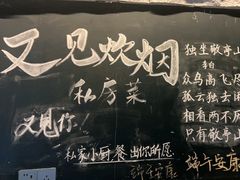 又见炊烟
私房菜
又见你!
私家小厨餐 出你所愿
许午安康
独坐敬亭山
李白
众鸟高飞尽
孤云独去闲
相看两不厌
只有敬亭山
端午安康